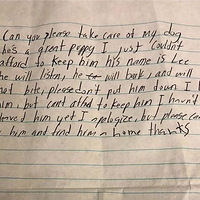 Can you please take care of my dog
he's a great puppy I just couldn't
afford to keep him his name is Lee
he will listen, he will bark, and will
not bite, please don't put him down I l
him, but cant afford to keep him I havn't
him yet I apologize, but please care
him and find him a home thanks